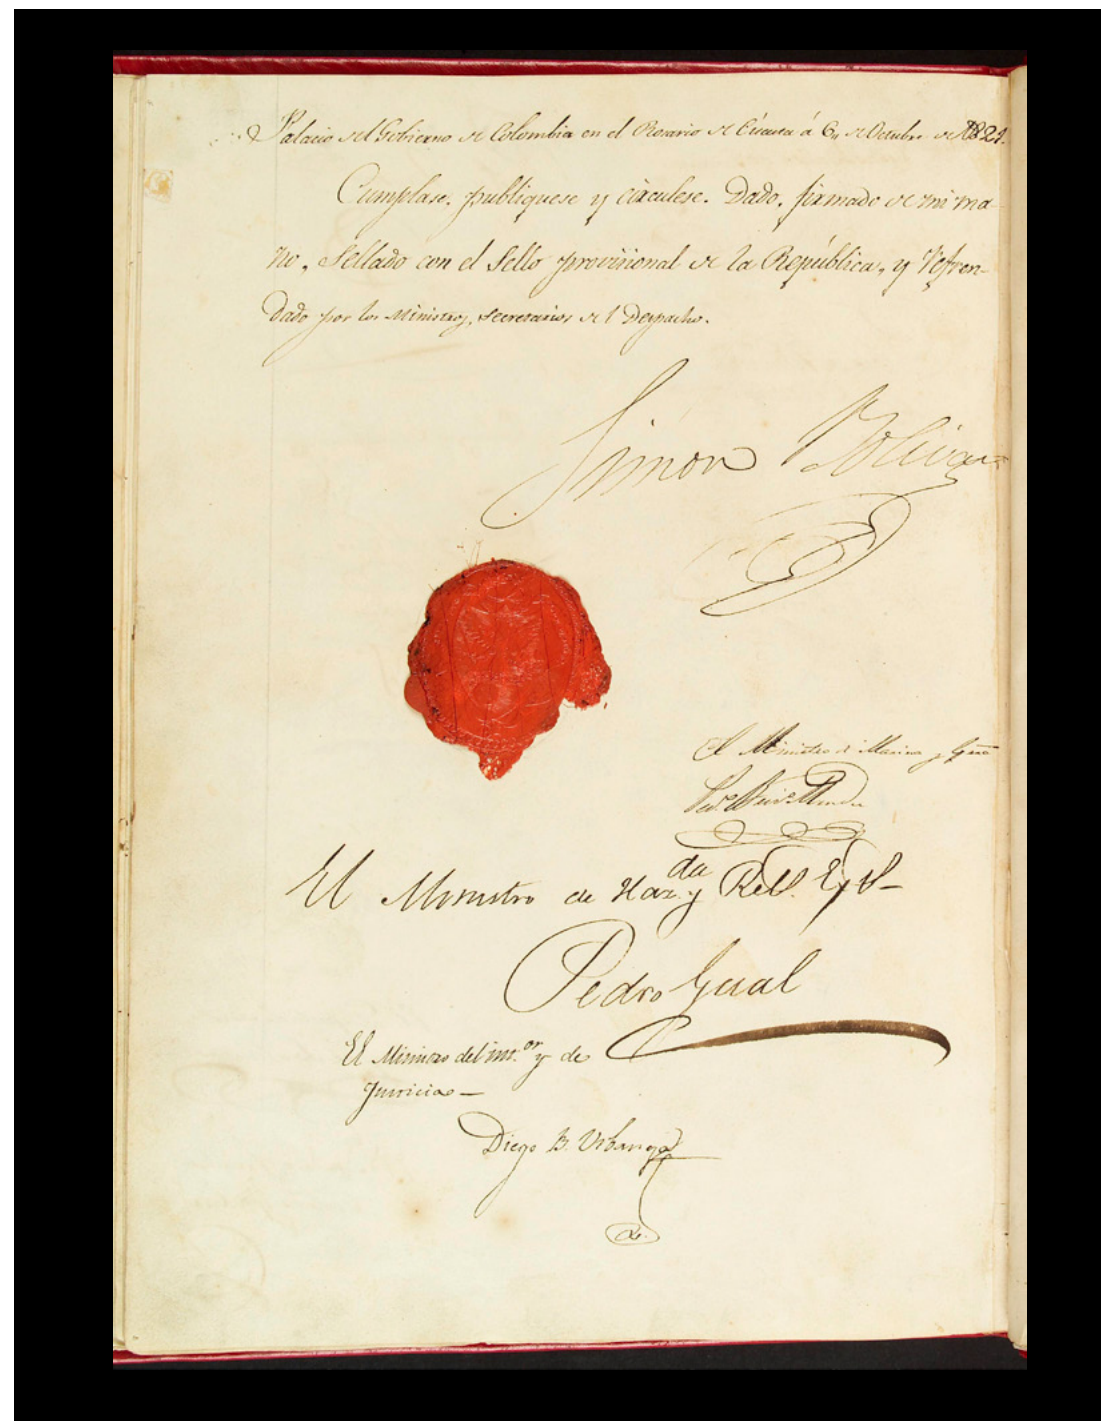 Palacio del Gobierno de Colombia en el Rosario de Cúcuta á 6,, de Octubre de 1821.
Cumplase, publiquese y circulese. Dado, firmado de mi ma-
no, Sellado con el Sello provisional de la República, y Refren-
dado por los Ministros, Secretarios del Despacho.
Simon Bolivar
El Ministro de Marina y Gẽra
El Ministro de Haz.da y Rel.s Ext.s
Pedro Gual
El Ministro del int.or y de
Justicia—
Diego B. Urbaneja